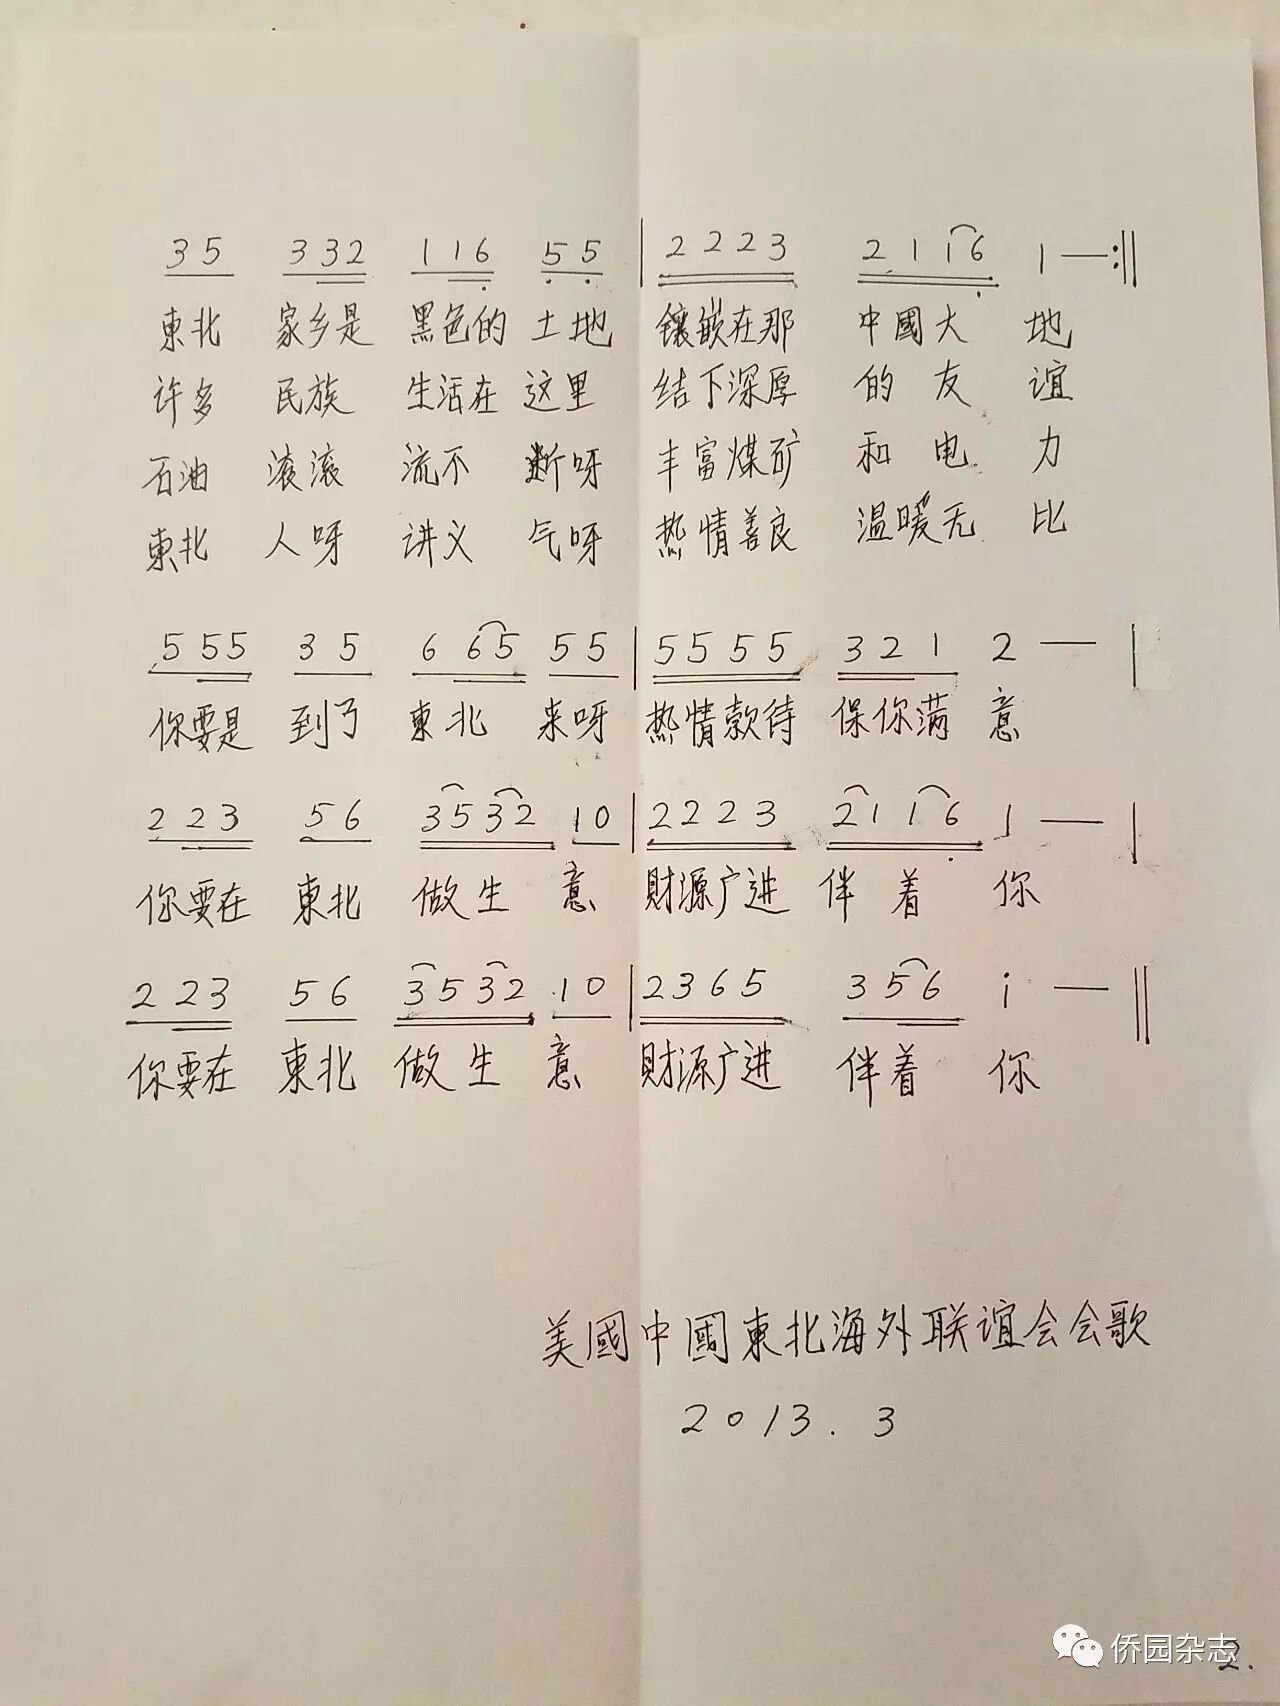 35 332 116 55 | 2223 2116 1 — :||
東北 家乡是 黑色的 土地 镶嵌在那 中國大 地
许多 民族 生活在 这里 结下深厚 的友 谊
石油 滚滚 流不 断呀 丰富煤矿 和电 力
東北 人呀 讲义 气呀 热情善良 温暖无 比
555 35 665 55 | 5555 321 2 — |
你要是 到了 東北 来呀 热情款待 保你满 意
223 56 3532 10 | 2223 2116 1 — |
你要在 東北 做生 意 財源广进 伴着 你
223 56 3532 10 | 2365 356 i — ||
你要在 東北 做生 意 財源广进 伴着 你
美國中國東北海外联谊会会歌
2013.3
侨园杂志
2.